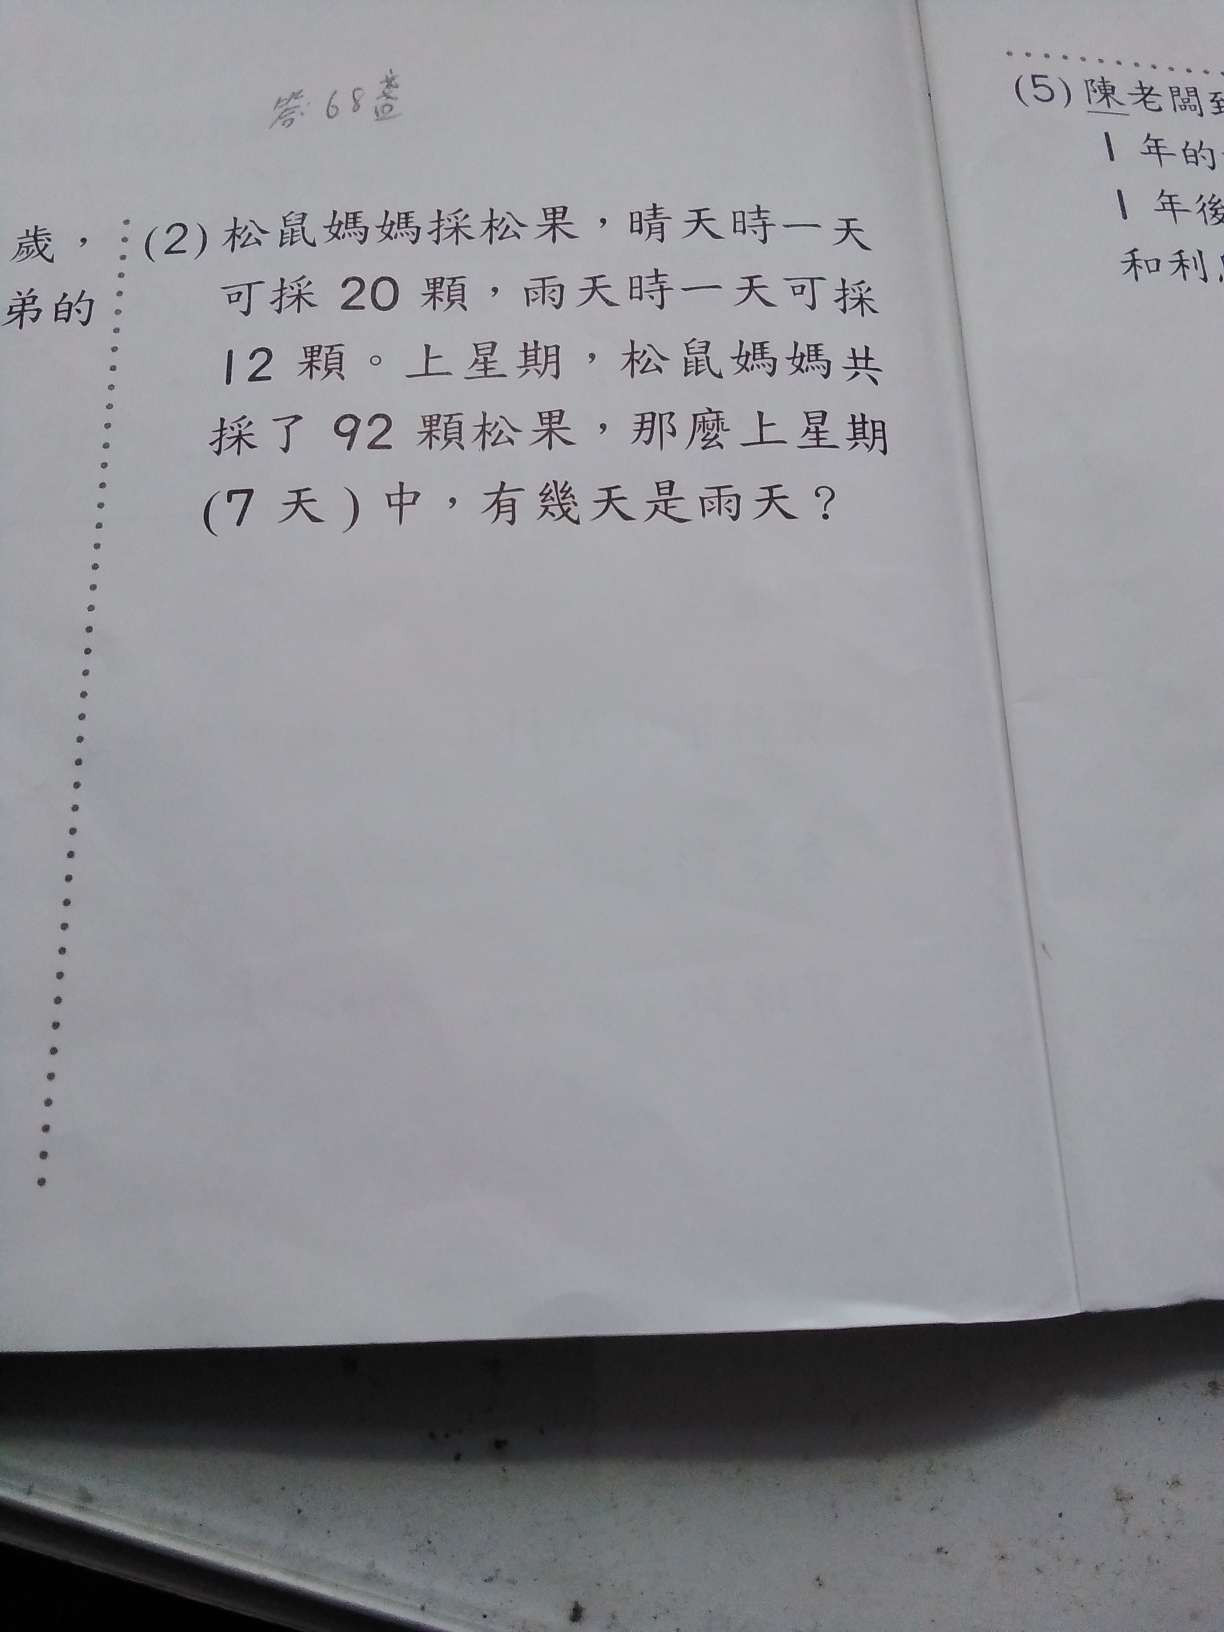 答: 68盞
歲，
弟的
(2) 松鼠媽媽採松果，晴天時一天
可採 20 顆，雨天時一天可採
12 顆。上星期，松鼠媽媽共
採了 92 顆松果，那麼上星期
(7 天) 中，有幾天是雨天？
(5) 陳老闆到
1 年的
1 年後
和利